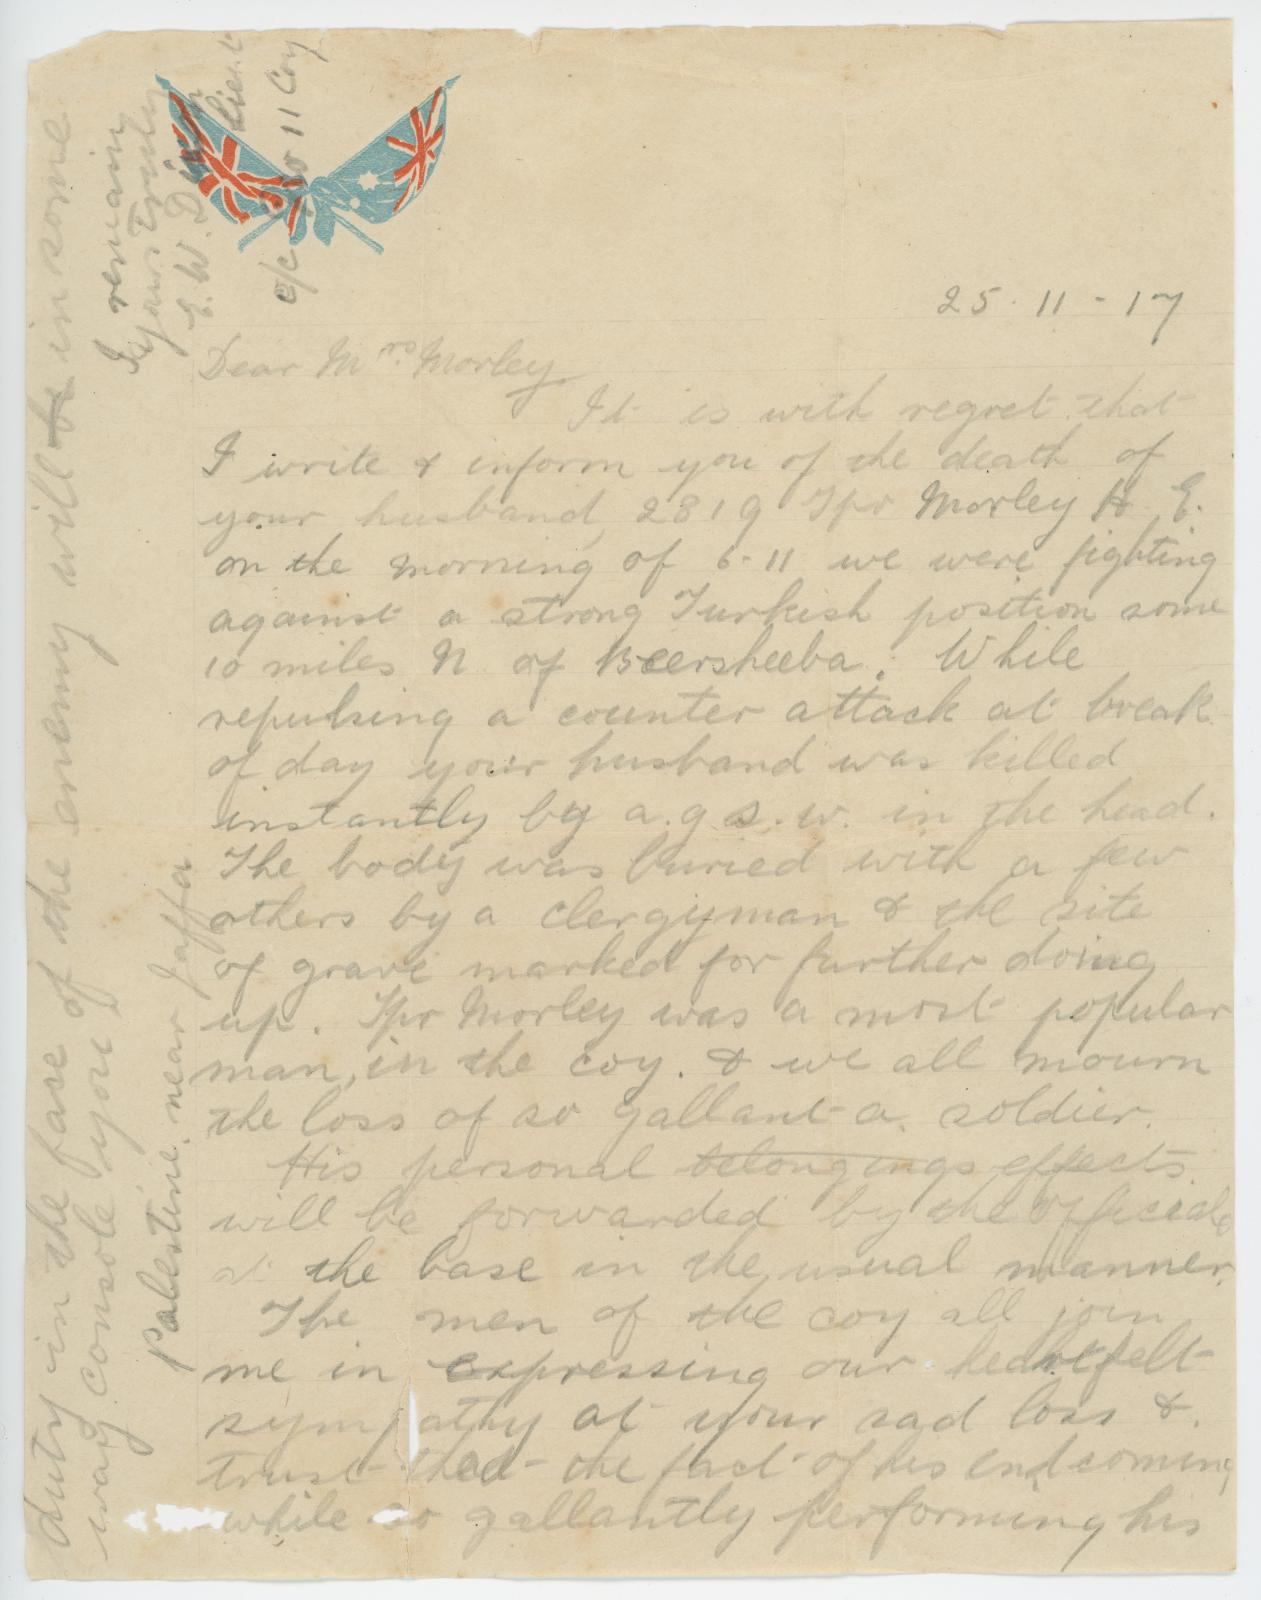 25-11-17
Dear Mrs. Morley
It is with regret that
I write & inform you of the death of
your husband, 2819 Tpr Morley H. E.
on the morning of 6-11 we were fighting
against a strong Turkish position some
10 miles N of Beersheeba. While
repulsing a counter attack at break
of day your husband was killed
instantly by a g.s.w. in the head.
The body was buried with a few
others by a clergyman & the site
of grave marked for further doing
up. Tpr Morley was a most popular
man, in the coy. & we all mourn
the loss of so gallant a soldier.
His personal belongings effects
will be forwarded by the officials
at the base in the usual manner.
The men of the coy all join
me in expressing our heartfelt
sympathy at your sad loss &
trust that the fact of his end coming
while so gallantly performing his
duty in the face of the enemy will be in some
way console you
I remain
yours truly
E. W. Dixon Lieut
o/c No 11 Coy
Palestine, near Jaffa